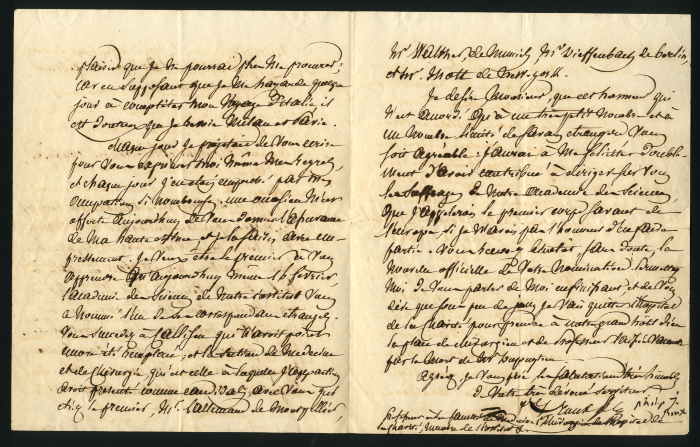 plaisir que je ne pourrai bien me procurer,
car en supposant que je me hazarde quelque
jour à compléter mon voyage d'Italie, il
est douteux que je revoie Milan et Pavie
chaque jour je projetais de vous écrire
pour vous exprimer moi même mes regrets
et chaque jour j'en étais empêché par mes
occupations si nombreuses. une occasion m'est
offerte aujourd'hui de vous donner la preuve
de ma haute estime et je la saisis avec em-
pressement. je veux être le premier à vous
apprendre qu'aujourd'hui même 16 février,
l'académie des Sciences de notre institut vous
a nommé l'un de ses correspondans étrangers.
vous succédez à Paletta qui n'avait point
encore été remplacé, et la section de Médecine
et de chirurgie qui est celle à laquelle j'appartiens
avait présenté comme candidats, avec vous qui
étiez le premier, Mr. Lallemand de Montpellier,
Mr Walther, de Munich, Mr. Dieffenbach de berlin,
et Mr. Mott de New-york.
Je désire Monsieur, que cet honneur qui
n'est accordé qu'à un très petit nombre et à
un nombre limité de savans étrangers vous
soit agréable: j'aurai à me féliciter double-
ment d'avoir contribué à diriger sur vous
les suffrages de notre académie des Sciences,
que j'appelerais le premier corps savant de
l'europe si je n'avais pas l'honneur d'en faire
partie. Vous recevrez bientôt sans doute la
nouvelle officielle de votre nomination.
vous parler de moi en finissant, et de vous
dire que sous peu de jours je vais quitter l'hopital
de la charité, pour prendre à notre grand hôtel dieu
la place de chirurgien et de professeur laissée vacante
par la mort de Mr Dupuytren.
agréez, je vous prie les salutations
de votre très dévoué serviteur
Roux
professeur à la faculté de Médecine, chirurgien de l'hopital de
la charité, membre de l'institut &